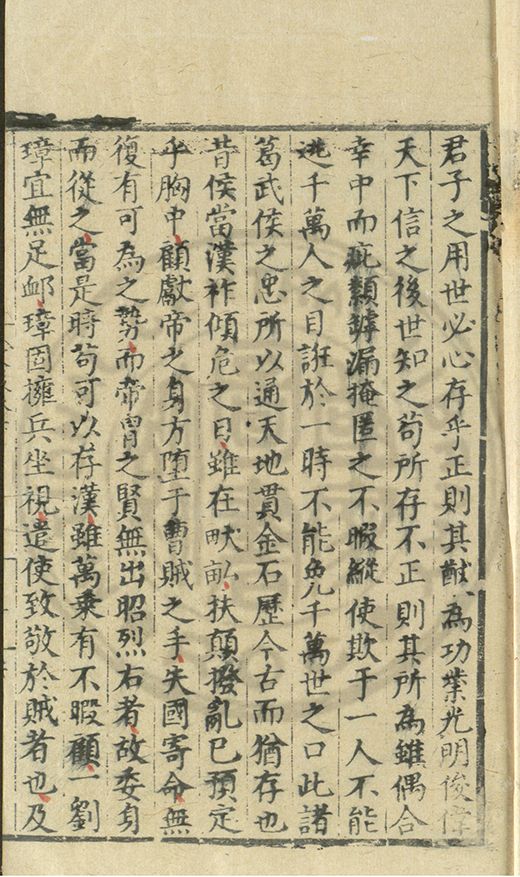 君子之用世必心存乎正則其猷為功業光明俊偉
天下信之後世知之苟所存不正則其所為雖偶合
幸中而疵纇罅漏掩匿之不暇縱使欺于一人不能
逃千萬人之目誑於一時不能免千萬世之口此諸
葛武侯之忠所以通天地貫金石歷今古而猶存也
昔侯當漢祚傾危之日雖在畎畝扶顛撥亂已預定
乎胸中顧獻帝之身方墮于曹賊之手失國寄命無
復有可為之勢而帝胄之賢無出昭烈右者故委身
而從之當是時苟可以存漢雖萬乘有不暇顧一劉
璋宜無足卹璋固擁兵坐視遣使致敬於賊者也及